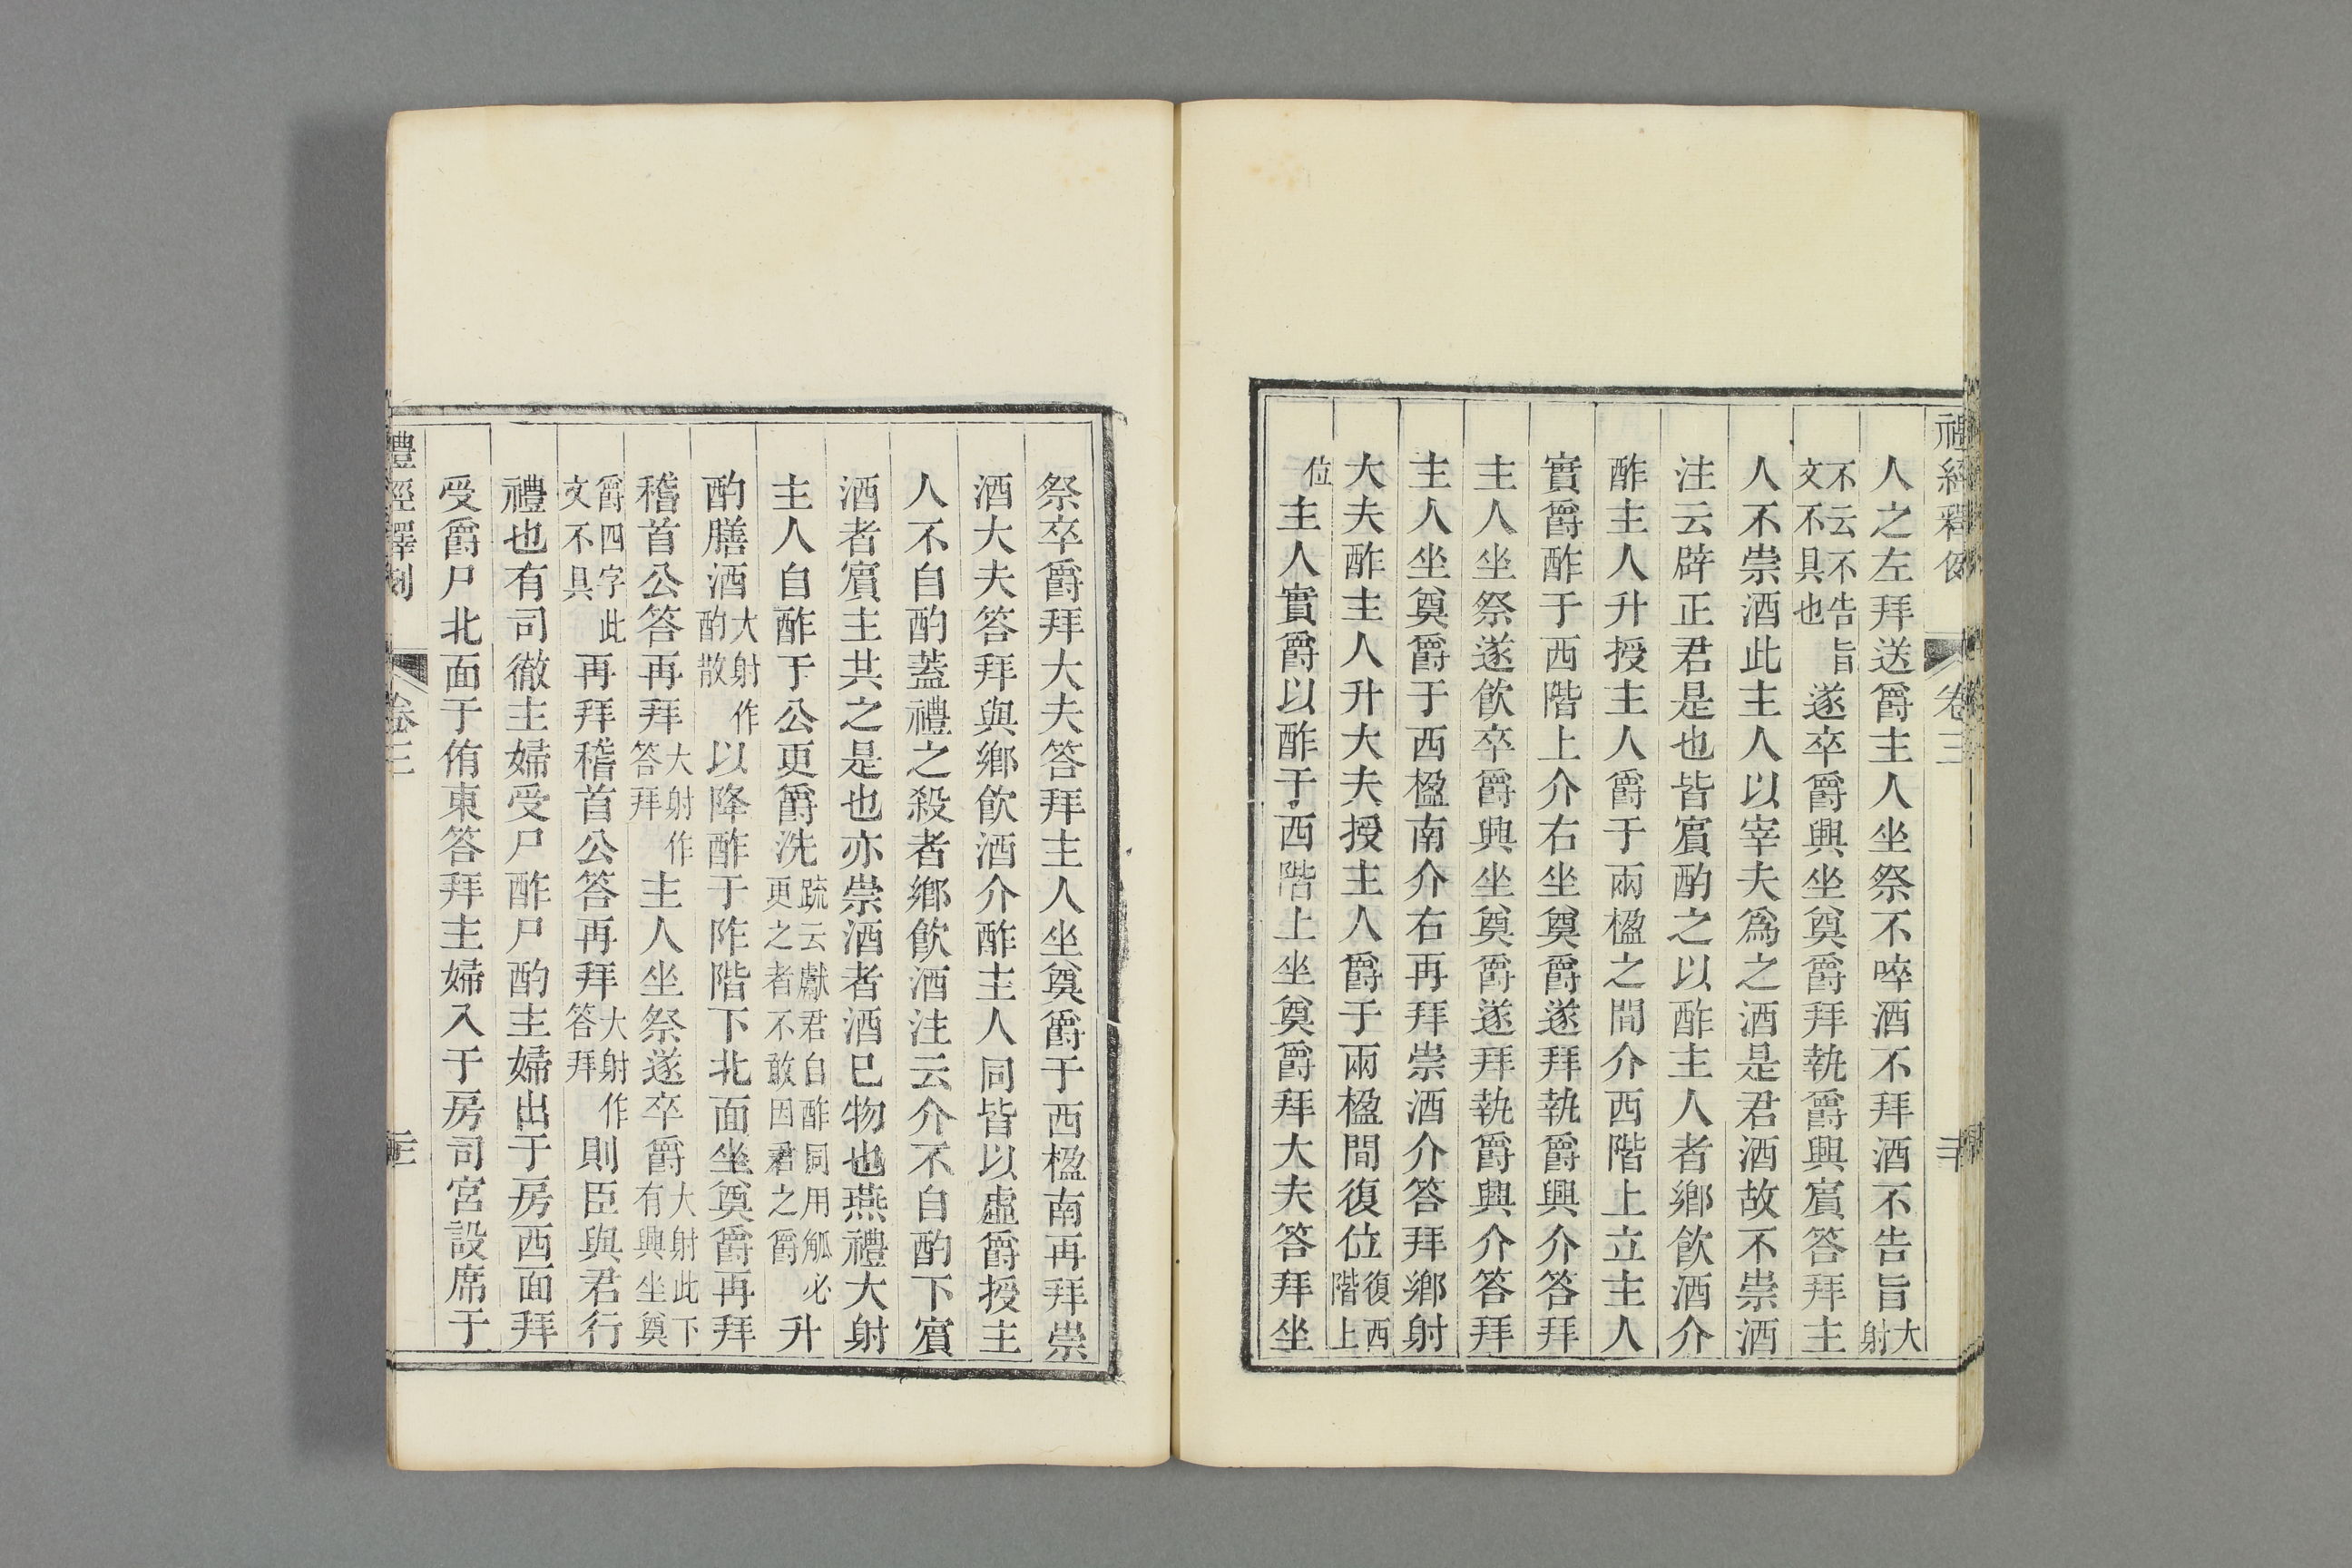 禮經釋例 卷三 二十
人之左拜送爵主人坐祭不啐酒不拜酒不告旨大射
不云不告旨文不具也遂卒爵興坐奠爵拜執爵興賓答拜主
人不崇酒此主人以宰夫爲之酒是君酒故不崇酒
注云辟正君是也皆賓酌之以酢主人者鄉飮酒介
酢主人升授主人爵于兩楹之間介西階上立主人
實爵酢于西階上介右坐奠爵遂拜執爵興介答拜
主人坐祭遂飮卒爵興坐奠爵遂拜執爵興介答拜
主人坐奠爵于西楹南介右再拜崇酒介答拜鄉射
大夫酢主人升大夫授主人爵于兩楹間復位復西階上
位主人實爵以酢于西階上坐奠爵拜大夫答拜坐
祭卒爵拜大夫答拜主人坐奠爵于西楹南再拜崇
酒大夫答拜與鄉飮酒介酢主人同皆以虛爵授主
人不自酌蓋禮之殺者鄉飮酒注云介不自酌下賓
酒者賓主共之是也亦崇酒者酒巳物也燕禮大射
主人自酢于公更爵洗疏云獻君自酢同用觚必更之者不敢因君之爵升
酌膳酒大射作酌散以降酢于阼階下北面坐奠爵再拜
稽首公答再拜大射作答拜主人坐祭遂卒爵大射此下有興坐奠
爵四字此文不具再拜稽首公答再拜大射作答拜則臣與君行
禮也有司徹主婦受尸酢尸酌主婦出于房西面拜
受爵尸北面于侑東答拜主婦入于房司宮設席于
禮經釋例 卷三